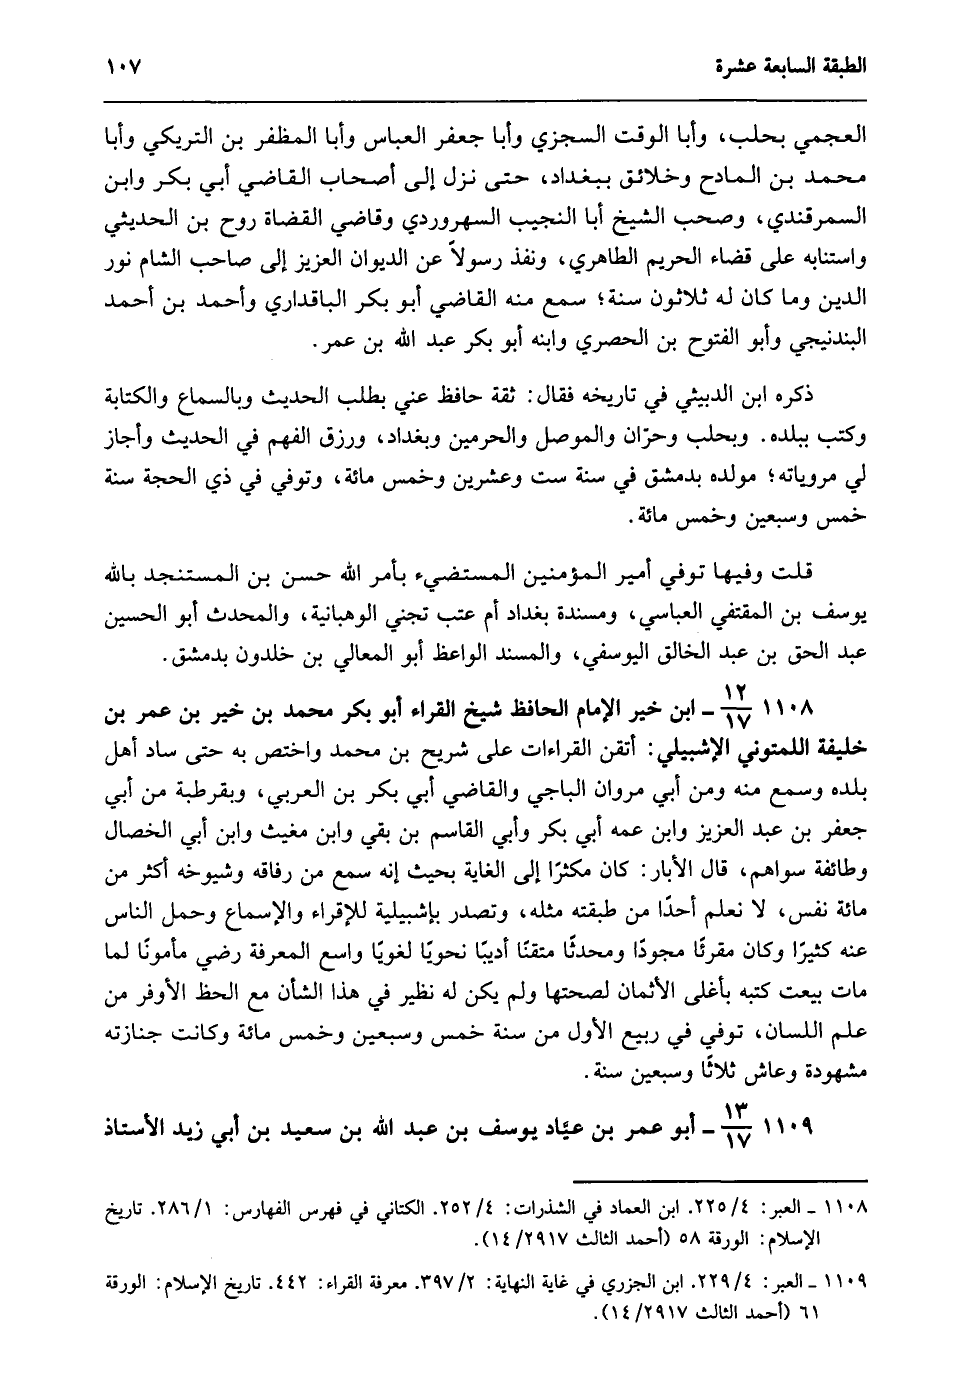 الطبقة السابعة عشرة ١٠٧
العجمي بحلب، وأبا الوقت السجزي وأبا جعفر العباس وأبا المظفر بن التريكي وأبا
محمد بن المادح وخلائق ببغداد، حتى نزل إلى أصحاب القاضي أبي بكر وابن
السمرقندي، وصحب الشيخ أبا النجيب السهروردي وقاضي القضاة روح بن الحديثي
واستنابه على قضاء الحريم الطاهري، ونفذ رسولاً عن الديوان العزيز إلى صاحب الشام نور
الدين وما كان له ثلاثون سنة؛ سمع منه القاضي أبو بكر الباقداري وأحمد بن أحمد
البندنيجي وأبو الفتوح بن الحصري وابنه أبو بكر عبد الله بن عمر.
ذكره ابن الدبيثي في تاريخه فقال: ثقة حافظ عني بطلب الحديث وبالسماع والكتابة
وكتب ببلده. وبحلب وحرّان والموصل والحرمين وبغداد، ورزق الفهم في الحديث وأجاز
لي مروياته؛ مولده بدمشق في سنة ست وعشرين وخمس مائة، وتوفي في ذي الحجة سنة
خمس وسبعين وخمس مائة.
قلت وفيها توفي أمير المؤمنين المستضيء بأمر الله حسن بن المستنجد بالله
يوسف بن المقتفي العباسي، ومسندة بغداد أم عتب تجني الوهبانية، والمحدث أبو الحسين
عبد الحق بن عبد الخالق اليوسفي، والمسند الواعظ أبو المعالي بن خلدون بدمشق.
١١٠٨ ١٢/١٧ ـ ابن خير الإمام الحافظ شيخ القراء أبو بكر محمد بن خير بن عمر بن
خليفة اللمتوني الإشبيلي: أتقن القراءات على شريح بن محمد واختص به حتى ساد أهل
بلده وسمع منه ومن أبي مروان الباجي والقاضي أبي بكر بن العربي، وبقرطبة من أبي
جعفر بن عبد العزيز وابن عمه أبي بكر وأبي القاسم بن بقي وابن مغيث وابن أبي الخصال
وطائفة سواهم، قال الأبار: كان مكثرًا إلى الغاية بحيث إنه سمع من رفاقه وشيوخه أكثر من
مائة نفس، لا نعلم أحدًا من طبقته مثله، وتصدر بإشبيلية للإقراء والإسماع وحمل الناس
عنه كثيرًا وكان مقرئًا مجودًا ومحدثًا متقنًا أديبًا نحويًا لغويًا واسع المعرفة رضي مأمونًا لما
مات بيعت كتبه بأغلى الأثمان لصحتها ولم يكن له نظير في هذا الشأن مع الحظ الأوفر من
علم اللسان، توفي في ربيع الأول من سنة خمس وسبعين وخمس مائة وكانت جنازته
مشهودة وعاش ثلاثًا وسبعين سنة.
١١٠٩ ١٣/١٧ ـ أبو عمر بن عيّاد يوسف بن عبد الله بن سعيد بن أبي زيد الأستاذ
١١٠٨ ـ العبر: ٤/٢٢٥. ابن العماد في الشذرات: ٤/٢٥٢. الكتاني في فهرس الفهارس: ١/٢٨٦. تاريخ
الإسلام: الورقة ٥٨ (أحمد الثالث ٢٩١٧/١٤).
١١٠٩ ـ العبر: ٤/٢٢٩. ابن الجزري في غاية النهاية: ٢/٣٩٧. معرفة القراء: ٤٤٢. تاريخ الإسلام: الورقة
٦١ (أحمد الثالث ٢٩١٧/١٤).